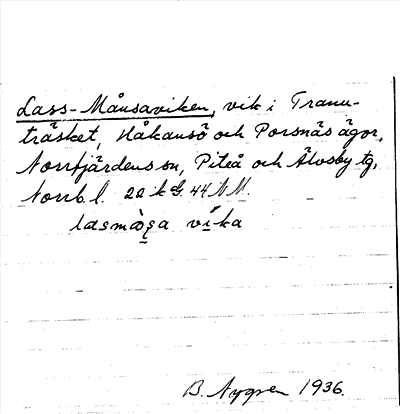 Lass-Månsaviken, vik i Tranu-
träsket, Håkansö och Porsnäs ägor,
Norrfjärdens sn, Piteå och Älvsby tg,
Norrb. l. 22 k G. 44 N M.
vika
B. Nygren 1936.